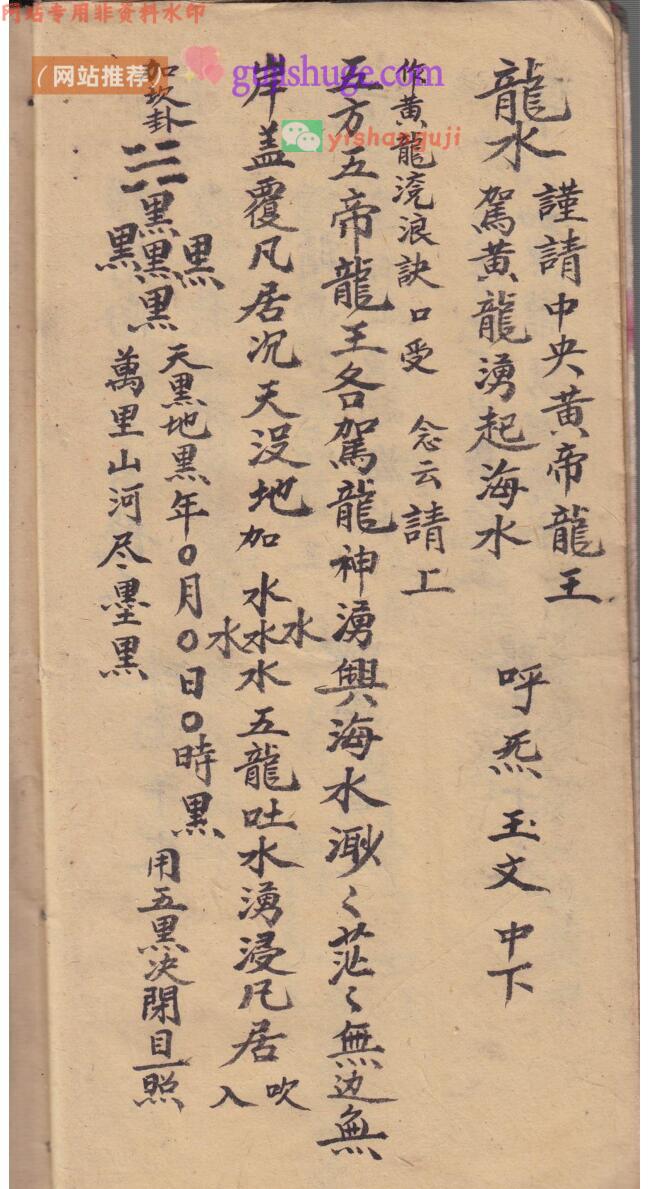 网站专用非资料水印
（网站推荐）
gujishuge.com
yishanguji
謹請中央黄帝龍王
龍水
駕黄龍湧起海水
呼炁玉文中下
作黄龍滾浪訣口受
念云請上
五方五帝龍王各駕龍神湧興海水渺〻茫〻無边無
岸盖覆凡居沉天没地加
水
水水水
水
五龍吐水湧浸凡居
吹
入
加坎卦
黑
黑黑黑
黑
天黑地黑年〇月〇日〇時黑
萬里山河尽墨黑
用五黑决閉目一照